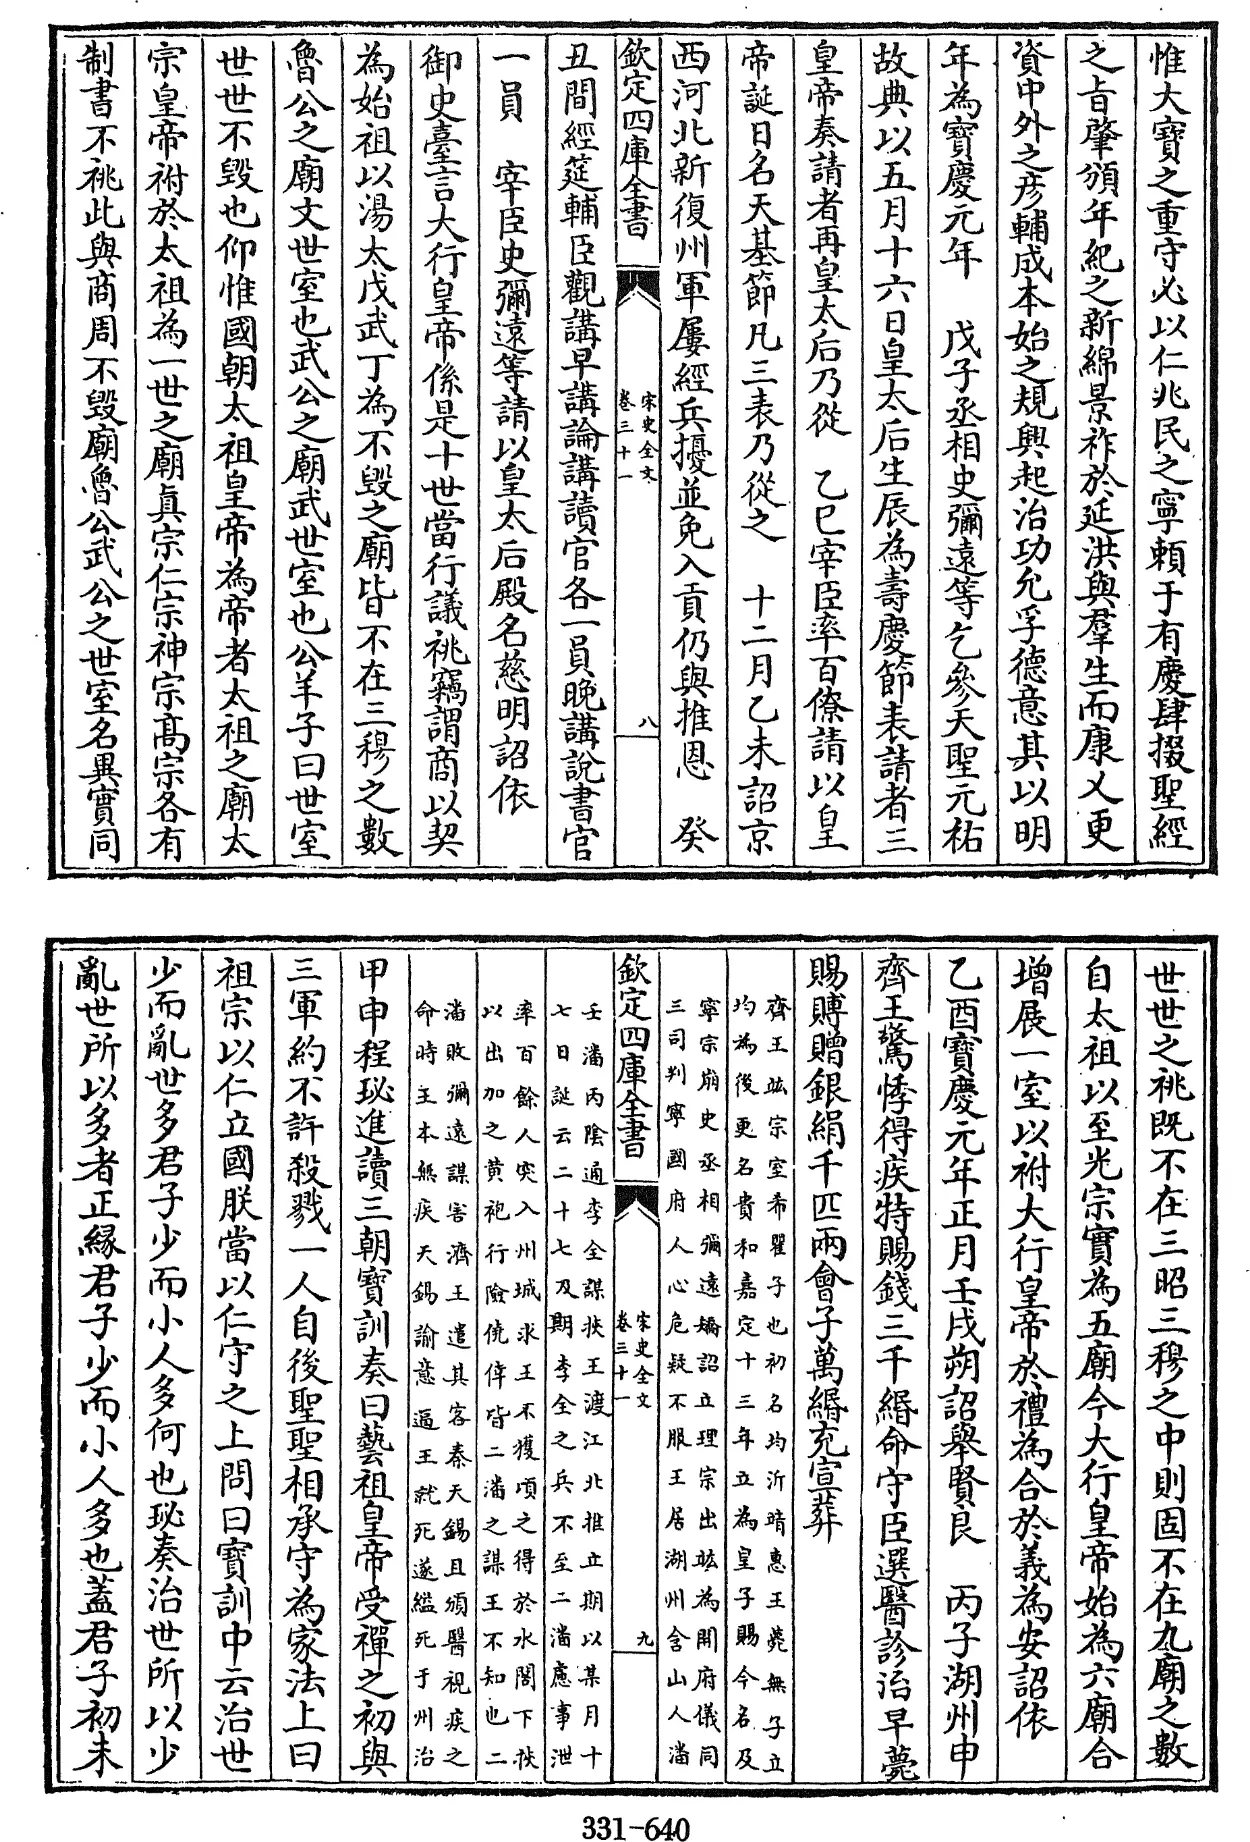 惟大寶之重守必以仁兆民之寧頼于有慶肆掇聖經
之旨肇頒年紀之新綿景祚於延洪與羣生而康乂更
資中外之彦輔成本始之規興起治功允孚德意其以明
年為寶慶元年　戊子丞相史彌遠等乞參天聖元祐
故典以五月十六日皇太后生辰為壽慶節表請者三
皇帝奏請者再皇太后乃從　乙巳宰臣率百僚請以皇
帝誕日名天基節凡三表乃從之　十二月乙未詔京
西河北新復州軍屢經兵擾並免入貢仍與推恩　癸
欽定四庫全書
宋史全文
卷三十一
八
丑間經筵輔臣觀講早講論講讀官各一員晚講說書官
一員　宰臣史彌遠等請以皇太后殿名慈明詔依
御史臺言大行皇帝係是十世當行議祧竊謂商以契
為始祖以湯太戊武丁為不毀之廟皆不在三穆之數
魯公之廟文世室也武公之廟武世室也公羊子曰世室
世世不毀也仰惟國朝太祖皇帝為帝者太祖之廟太
宗皇帝祔於太祖為一世之廟真宗仁宗神宗高宗各有
制書不祧此與商周不毀廟魯公武公之世室名異實同
世世之祧既不在三昭三穆之中則固不在九廟之數
自太祖以至光宗實為五廟今大行皇帝始為六廟合
增展一室以祔大行皇帝於禮為合於義為安詔依
乙酉寶慶元年正月壬戌朔詔舉賢良　丙子湖州申
齊王驚悸得疾特賜錢三千緡命守臣選醫診治早薨
賜賻贈銀絹千匹兩會子萬緡充宣葬
齊王竑宗室希瞿子也初名均沂靖惠王薨無子立
均為後更名貴和嘉定十三年立為皇子賜今名及
寧宗崩史丞相彌遠矯詔立理宗出竑為開府儀同
三司判寧國府人心危疑不服王居湖州含山人潘
欽定四庫全書
宋史全文
卷三十一
九
壬潘丙陰通李全謀挾王渡江北推立期以某月十
七日誕云二十七及期李全之兵不至二潘慮事泄
率百餘人突入州城求王不獲頃之得於水閣下挾
以出加之黄袍行險僥倖皆二潘之謀王不知也二
潘敗彌遠謀害濟王遣其客秦天錫且頒醫視疾之
命時王本無疾天錫諭意逼王就死遂縊死于州治
甲申程珌進讀三朝寶訓奏曰藝祖皇帝受禪之初與
三軍約不許殺戮一人自後聖聖相承守為家法上曰
祖宗以仁立國朕當以仁守之上問曰寶訓中云治世
少而亂世多君子少而小人多何也珌奏治世所以少
亂世所以多者正緣君子少而小人多也蓋君子初未
331-640